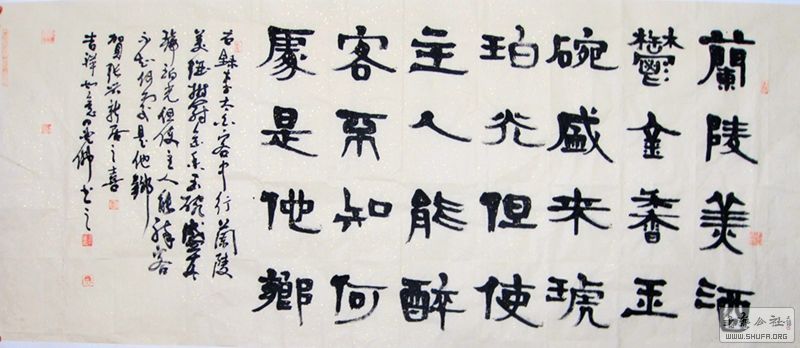 蘭陵美酒
鬱金香玉
碗盛來琥
珀光但使
主人能醉
客不知何
處是他鄉
右録李太白客中行蘭陵
美酒鬱金香玉碗盛來
琥珀光但使主人能醉客
不知何處是他鄉
賀張新居之喜
吉祥如意佛书之
书法公社
WWW.SHUFA.ORG